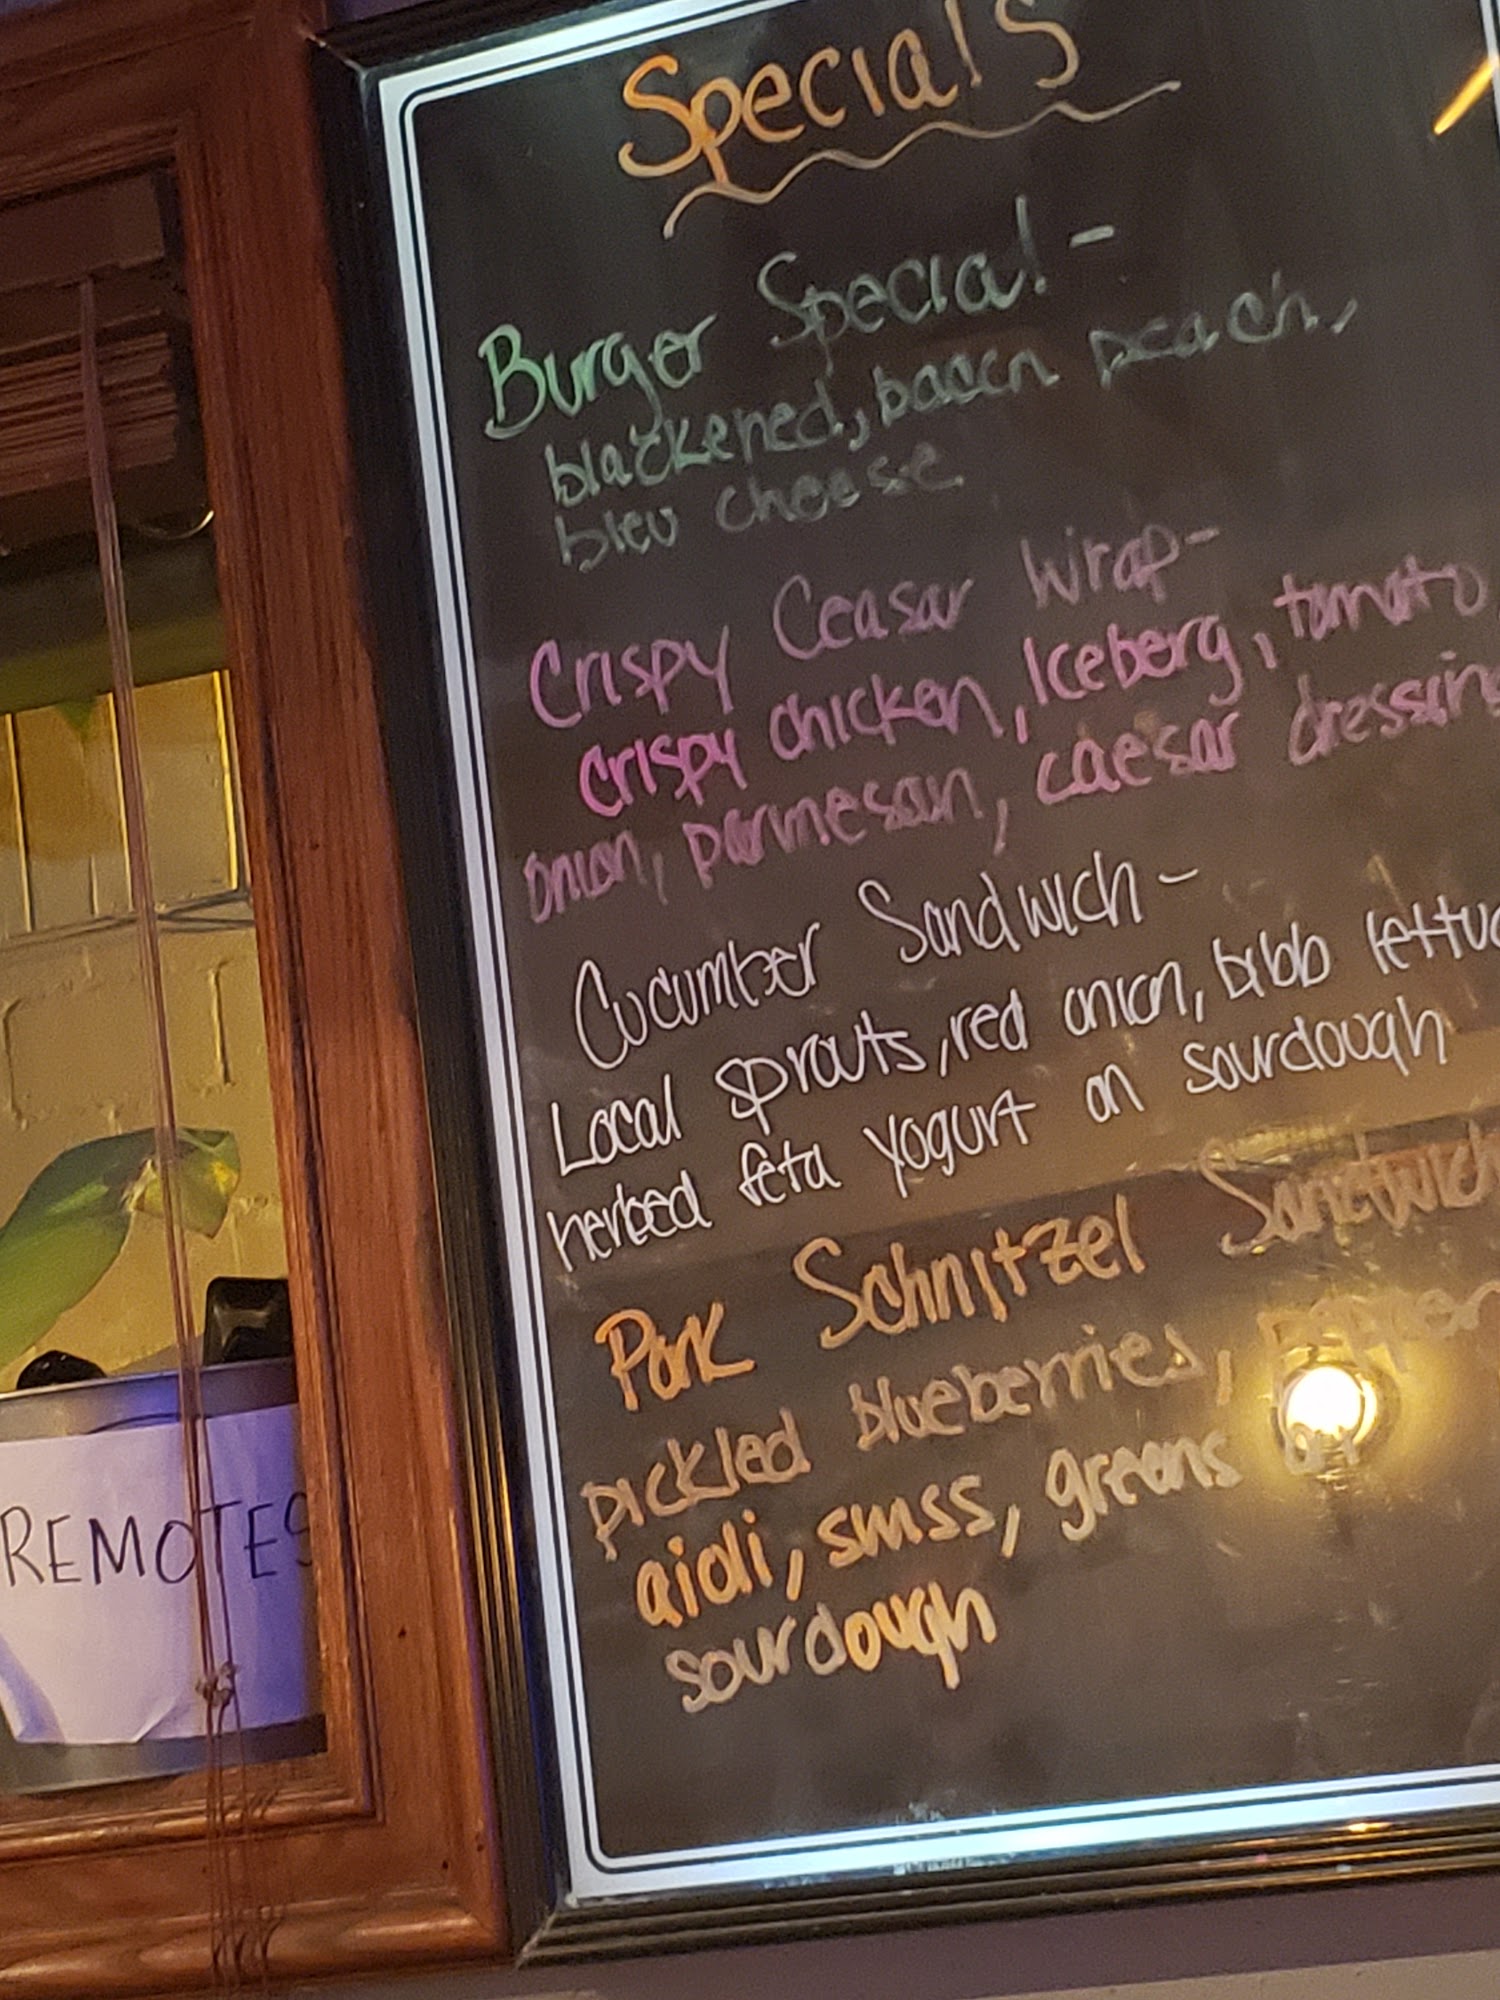 Specials
Burger Special -
blackened, bacon peach,
bleu cheese
Crispy Ceasar Wrap-
crispy chicken, Iceberg, tomato
onion, parmesan, caesar dressing
Cucumber Sandwich -
Local sprouts, red onion, bibb lettuc
herbed feta yogurt on sourdough
Pork Schnitzel Sandwich
pickled blueberries, pepper
aioli, swiss, greens on
sourdough
REMOTES